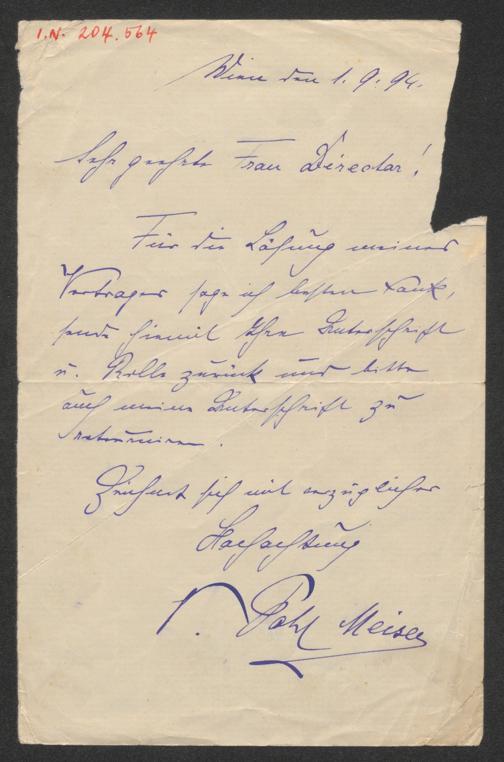 I.N. 204.564
Wien den 1. 9. 94.
Sehr geehrte Frau Director!
Für die Lösung meines
Vertrages sage ich besten Dank,
sende hiemit Ihre Unterschrift
u. Rolle zurück und bitte
auch meine Unterschrift zu
retournieren.
Zeichnet sich mit vorzüglicher
Hochachtung
Pohl Meiser